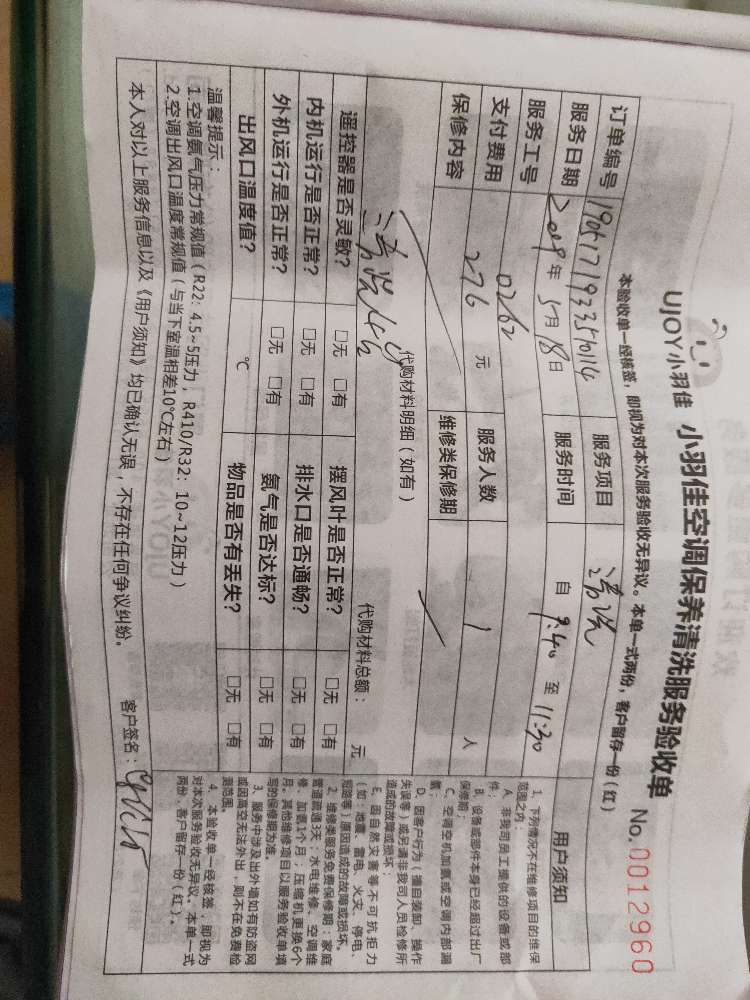 UJOY小羽佳 小羽佳空调保养清洗服务验收单 No.0012960
本验收单一经核签，即视为对本次服务验收无异议。本单一式两份，客户留存一份（红）
订单编号 服务项目 清洗
服务日期 2009年5月18日 服务时间 自 9:40 至 11:30
服务工号 0262
支付费用 276 元 服务人数 1 人
保修内容 维修类保修期
代购材料明细（如有）
清洗
代购材料总额： 元
遥控器是否灵敏？ □无 □有 摆风叶是否正常？ □无 □有
内机运行是否正常？ □无 □有 排水口是否通畅？ □无 □有
外机运行是否正常？ □无 □有 氨气是否达标？ □无 □有
出风口温度值？ ℃ 物品是否有丢失？ □无 □有
温馨提示：
1.空调氨气压力常规值（R22: 4.5~5压力，R410/R32: 10~12压力）
2.空调出风口温度常规值（与当下室温相差10℃左右）
本人对以上服务信息以及《用户须知》均已确认无误，不存在任何争议纠纷。 客户签名：
用户须知
1、下列情况不在维修项目的维保
范围之内：
A、非我司员工提供的设备或部
件；
B、设备或部件本身已经超过出厂
保修期；
C、空调空机加氨或空调内部漏
氨；
D、因客户行为（擅自装卸、操作
失误等）或另请非我司人员检修所
造成的故障或损坏；
E、因自然灾害等不可抗拒力
（如：地震、雷电、火灾、停电、
短路等）原因造成的故障或损坏。
2、维修类服务免费保修期：家庭
管道疏通3天；水电维修、空调维
修、加氨1个月；压缩机更换6个
月。其他维修项目以服务验收单填
写的保修期为准。
3、服务中涉及出外墙如有防盗网
或因高空无法外出，则不在免费检
测范围。
4、本验收单一经核签，即视为
对本次服务验收无异议。本单一式
两份，客户留存一份（红）。